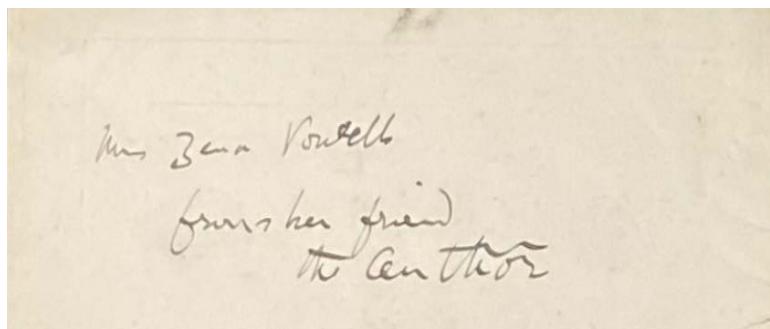 Mrs Zena Powells
from her friend
the author